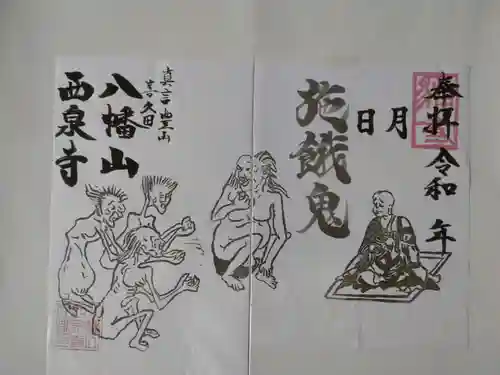 奉拝
令和 年
月
日
施餓鬼
真言豊山
喜久田
八幡山
西泉寺